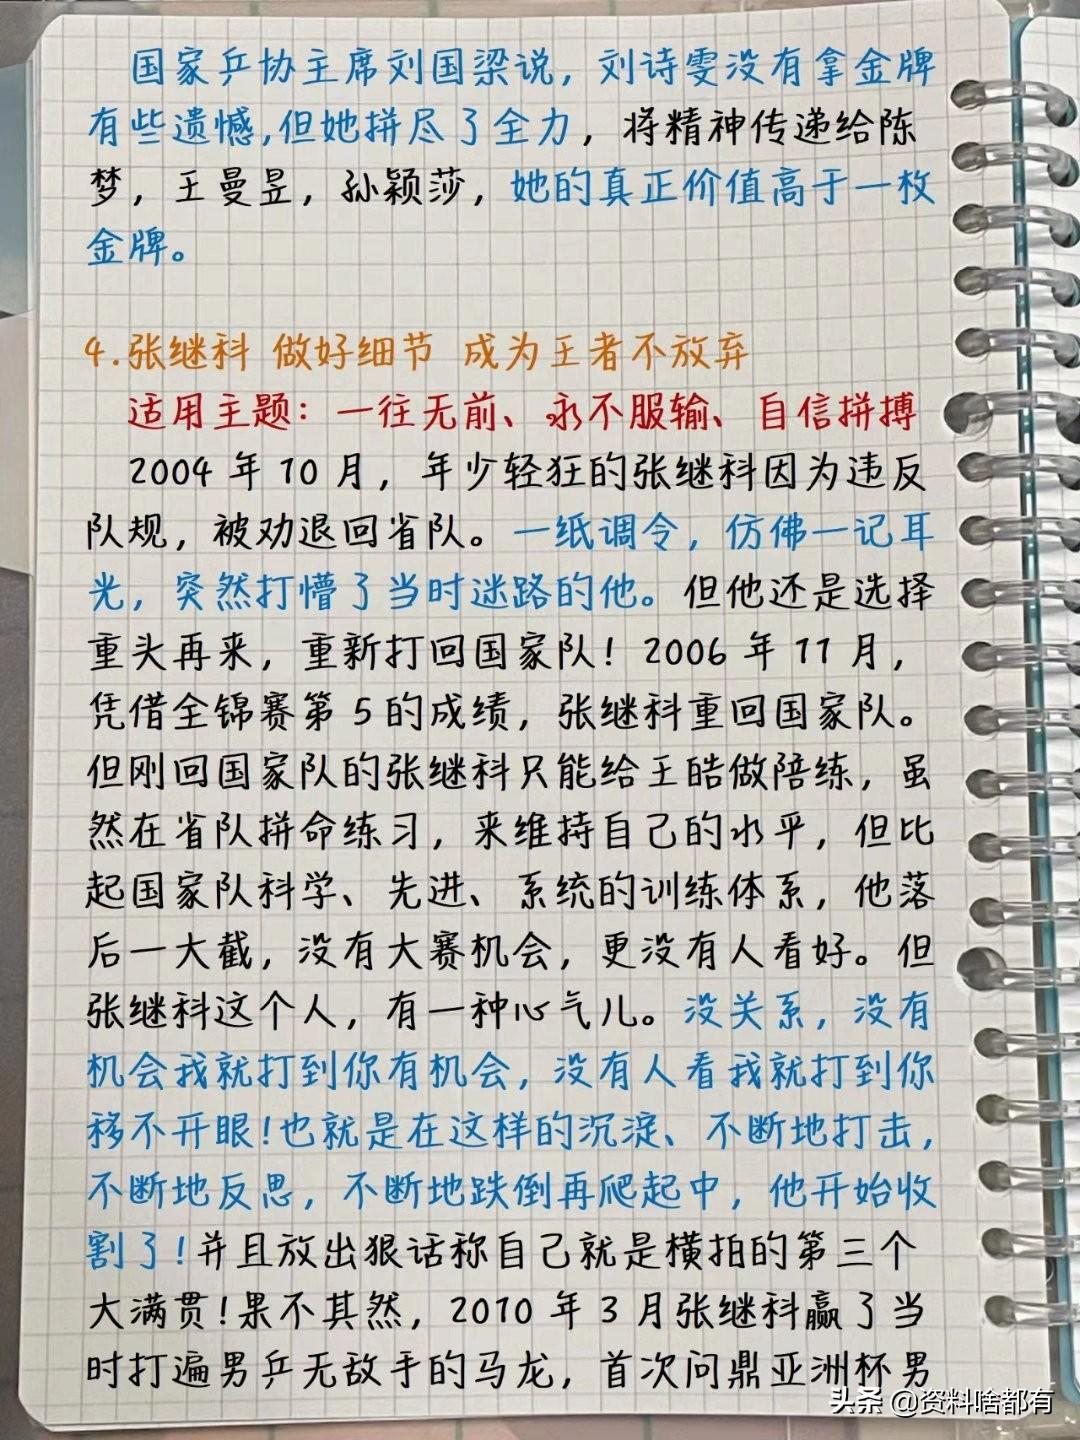 国家乒协主席刘国梁说，刘诗雯没有拿金牌
有些遗憾,但她拼尽了全力，将精神传递给陈
梦，王曼昱，孙颖莎，她的真正价值高于一枚
金牌。
4.张继科 做好细节 成为王者不放弃
适用主题：一往无前、永不服输、自信拼搏
2004 年 10 月，年少轻狂的张继科因为违反
队规，被劝退回省队。一纸调令，仿佛一记耳
光，突然打懵了当时迷路的他。但他还是选择
重头再来，重新打回国家队！2006 年 11 月，
凭借全锦赛第 5 的成绩，张继科重回国家队。
但刚回国家队的张继科只能给王皓做陪练，虽
然在省队拼命练习，来维持自己的水平，但比
起国家队科学、先进、系统的训练体系，他落
后一大截，没有大赛机会，更没有人看好。但
张继科这个人，有一种心气儿。没关系，没有
机会我就打到你有机会，没有人看我就打到你
移不开眼!也就是在这样的沉淀、不断地打击，
不断地反思，不断地跌倒再爬起中，他开始收
割了!并且放出狠话称自己就是横拍的第三个
大满贯!果不其然，2010 年 3 月张继科赢了当
时打遍男乒无敌手的马龙，首次问鼎亚洲杯男
头条 @资料啥都有